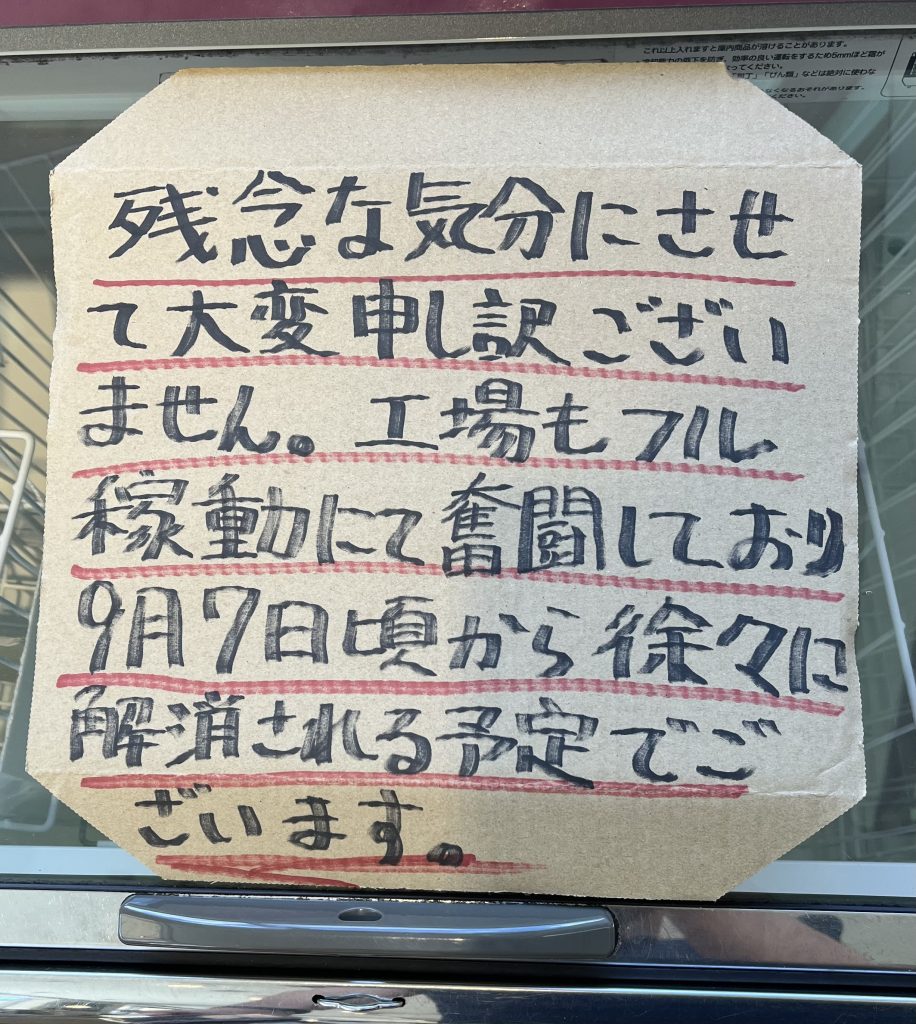 これ以上入れますと庫内商品が溶けることがあります。
の低下を防ぎ、効率の良い運転をするため5mmほど霜が
ってください。
「びん類」などは絶対に使わな
なくなるおそれがあります。
ください。
残念な気分にさせ
て大変申し訳ござい
ません。工場もフル
稼動にて奮闘しており
9月7日頃から徐々に
解消される予定でご
ざいます。